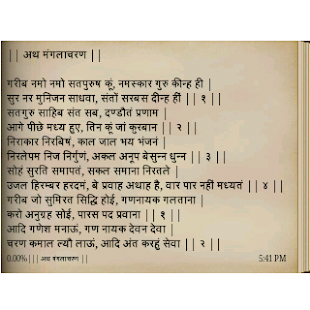 || अथ मंगलाचरण ||
गरीब नमो नमो सतपुरुष कूं, नमस्कार गुरु कीन्ह ही |
सुर नर मुनिजन साधवा, संतों सरबस दीन्ह ही || १ ||
सतगुरु साहिब संत सब, दण्डौतं प्रणाम |
आगे पीछे मध्य हुए, तिन कूं जां कुरबान || २ ||
निराकार निरबिषं, काल जाल भय भंजनं |
निरलेपम निज निर्गुणं, अकल अनूप बेसुन्न धुन्न || ३ ||
सोहं सुरति समापतं, सकल समाना निरतले |
उजल हिरम्बर हरदमं, बे प्रवाह अथाह है, वार पार नहीं मध्यतं || ४ ||
गरीब जो सुमिरत सिद्धि होई, गणनायक गलताना |
करो अनुग्रह सोई, पारस पद प्रवाना || १ ||
आदि गणेश मनाऊं, गण नायक देवन देवा |
चरण कमाल ल्यौ लाऊं, आदि अंत करहूं सेवा || २ ||
0.00% ||| अथ मंगलाचरण || 5:41 PM